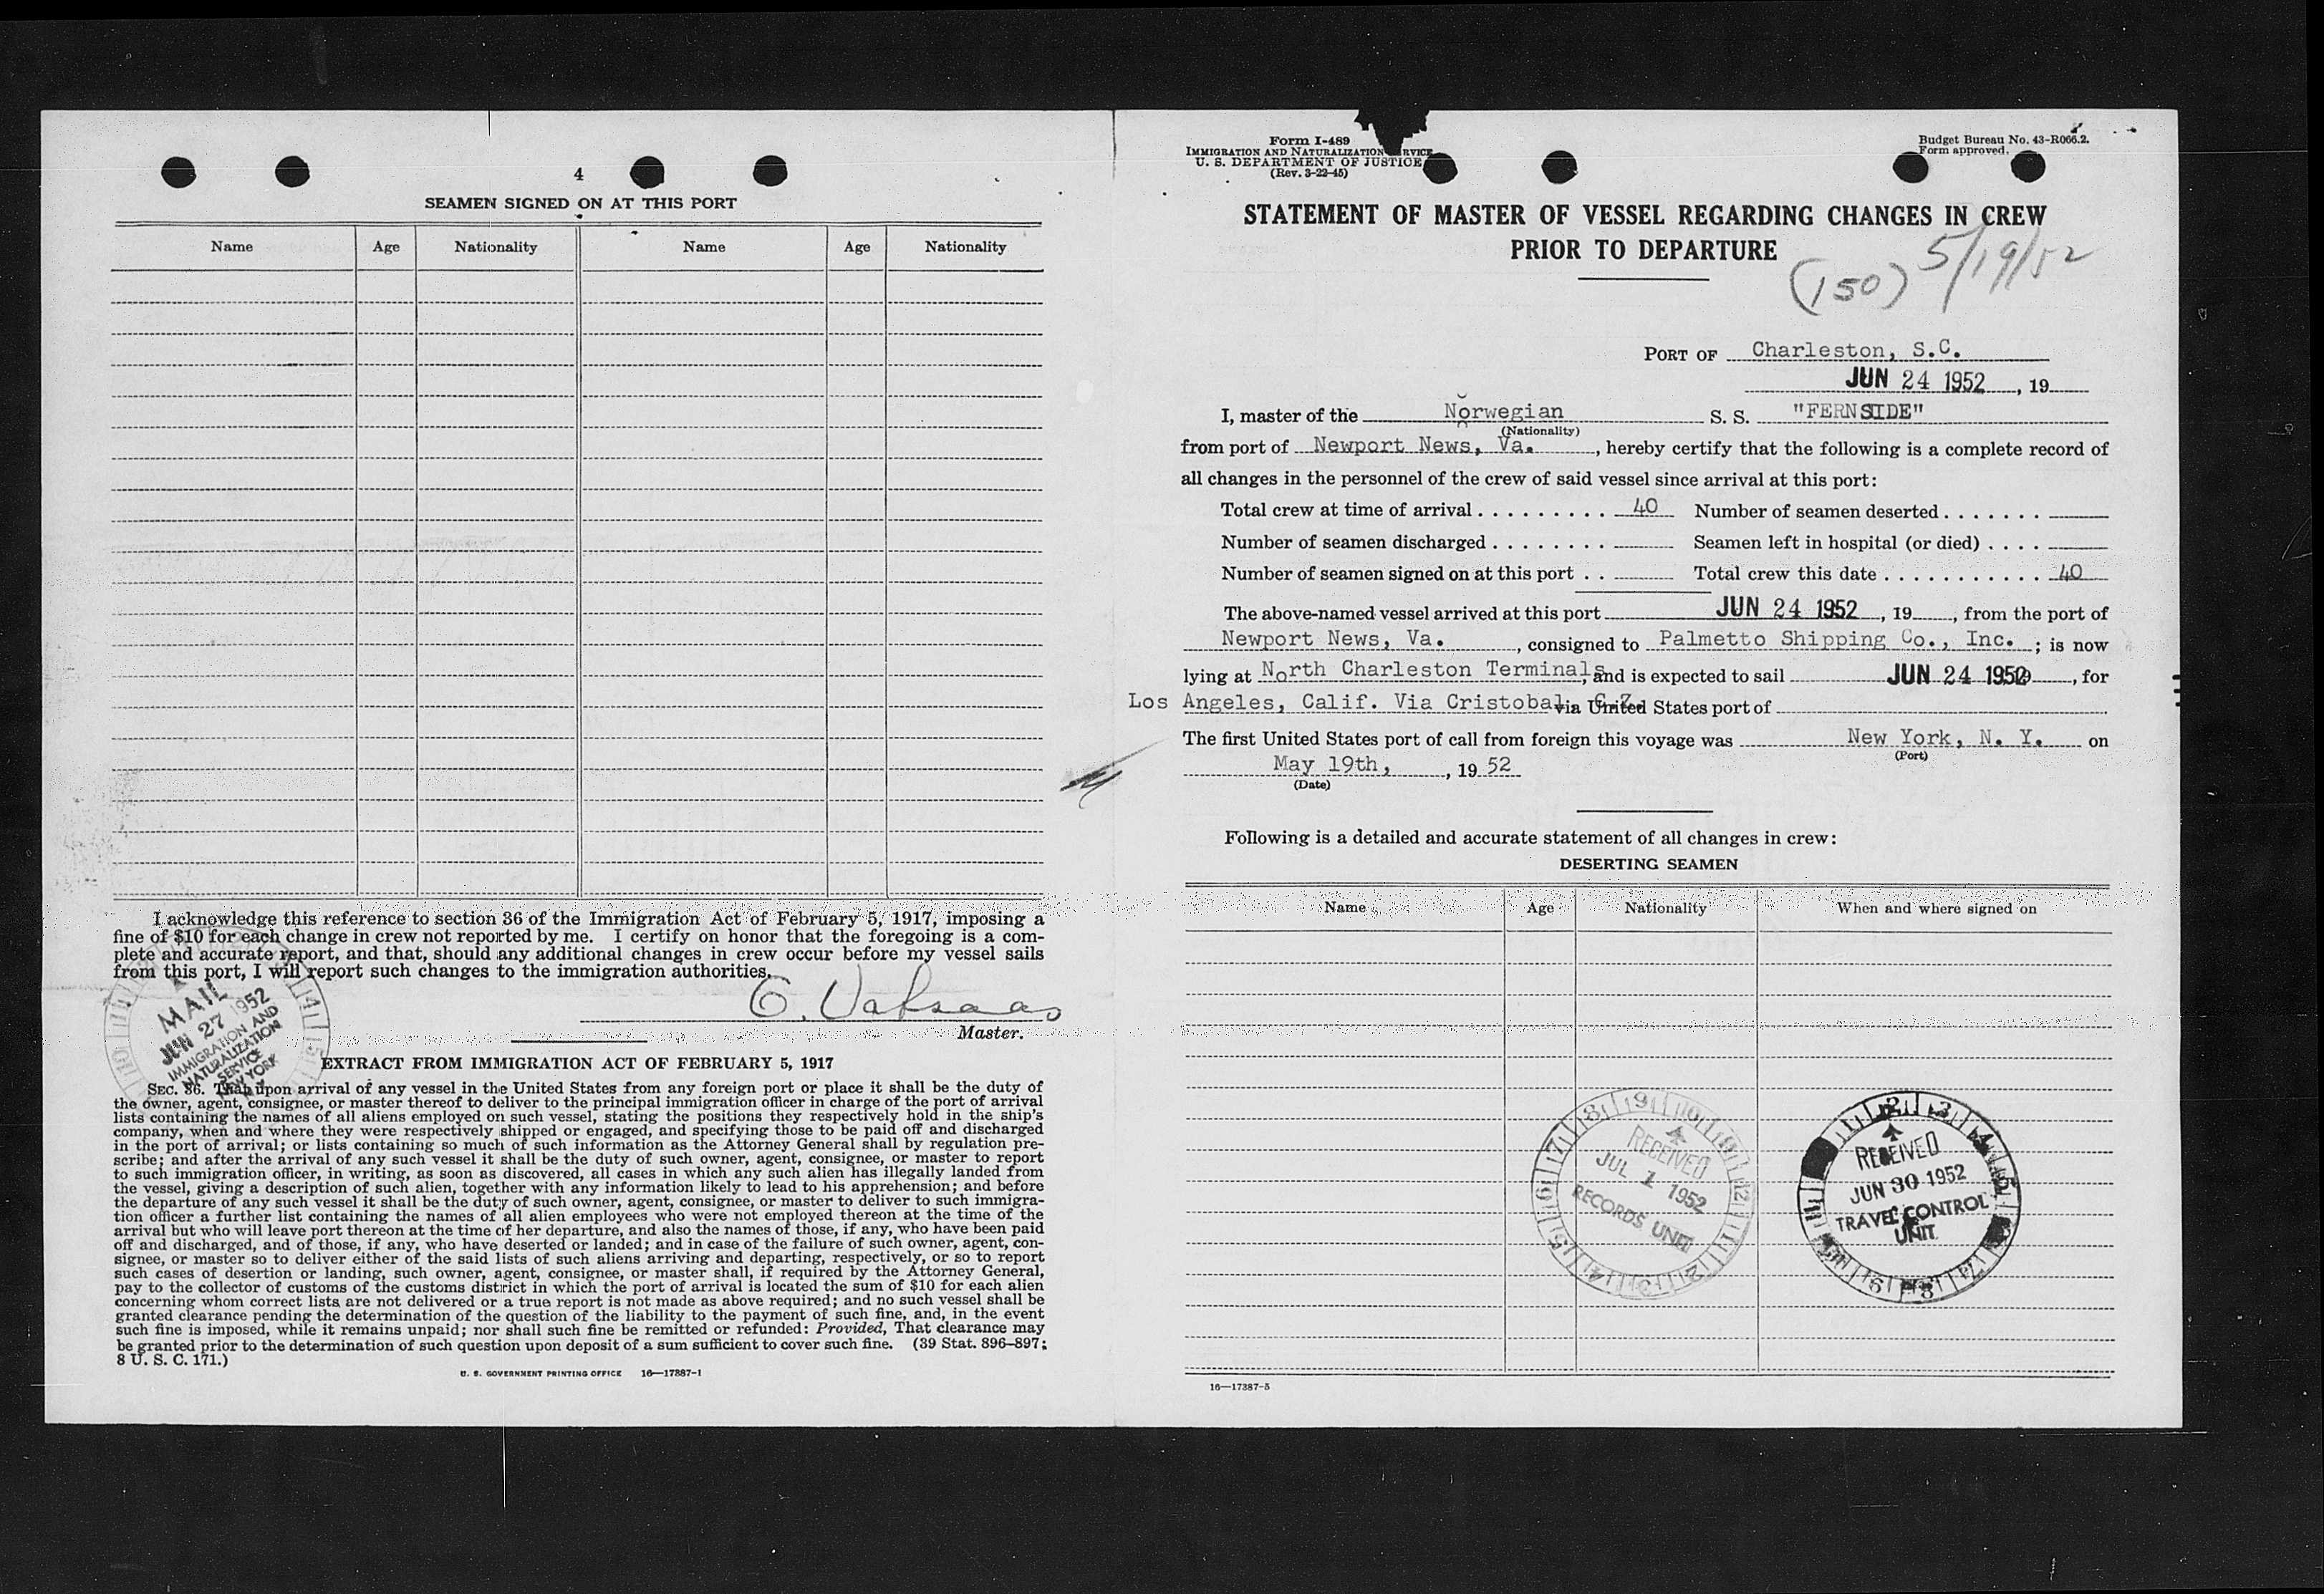 4
SEAMEN SIGNED ON AT THIS PORT
Name Age Nationality Name Age Nationality
I acknowledge this reference to section 36 of the Immigration Act of February 5, 1917, imposing a
fine of $10 for each change in crew not reported by me. I certify on honor that the foregoing is a com-
plete and accurate report, and that, should any additional changes in crew occur before my vessel sails
from this port, I will report such changes to the immigration authorities.
Master.
MAIL
JUN 27 1952
IMMIGRATION AND
NATURALIZATION
SERVICE
NEW YORK
EXTRACT FROM IMMIGRATION ACT OF FEBRUARY 5, 1917
SEC. 36. That upon arrival of any vessel in the United States from any foreign port or place it shall be the duty of
the owner, agent, consignee, or master thereof to deliver to the principal immigration officer in charge of the port of arrival
lists containing the names of all aliens employed on such vessel, stating the positions they respectively hold in the ship's
company, when and where they were respectively shipped or engaged, and specifying those to be paid off and discharged
in the port of arrival; or lists containing so much of such information as the Attorney General shall by regulation pre-
scribe; and after the arrival of any such vessel it shall be the duty of such owner, agent, consignee, or master to report
to such immigration officer, in writing, as soon as discovered, all cases in which any such alien has illegally landed from
the vessel, giving a description of such alien, together with any information likely to lead to his apprehension; and before
the departure of any such vessel it shall be the duty of such owner, agent, consignee, or master to deliver to such immigra-
tion officer a further list containing the names of all alien employees who were not employed thereon at the time of the
arrival but who will leave port thereon at the time of her departure, and also the names of those, if any, who have been paid
off and discharged, and of those, if any, who have deserted or landed; and in case of the failure of such owner, agent, con-
signee, or master so to deliver either of the said lists of such aliens arriving and departing, respectively, or so to report
such cases of desertion or landing, such owner, agent, consignee, or master shall, if required by the Attorney General,
pay to the collector of customs of the customs district in which the port of arrival is located the sum of $10 for each alien
concerning whom correct lists are not delivered or a true report is not made as above required; and no such vessel shall be
granted clearance pending the determination of the question of the liability to the payment of such fine, and, in the event
such fine is imposed, while it remains unpaid; nor shall such fine be remitted or refunded: Provided, That clearance may
be granted prior to the determination of such question upon deposit of a sum sufficient to cover such fine. (39 Stat. 896-897;
8 U. S. C. 171.)
U. S. GOVERNMENT PRINTING OFFICE 16—17387-1
Form I-489
IMMIGRATION AND NATURALIZATION SERVICE
U. S. DEPARTMENT OF JUSTICE
(Rev. 3-22-45)
Budget Bureau No. 43-R066.2.
Form approved.
STATEMENT OF MASTER OF VESSEL REGARDING CHANGES IN CREW
PRIOR TO DEPARTURE
(150) 5/19/52
PORT OF Charleston, S.C.
JUN 24 1952, 19
I, master of the Norwegian S. S. "FERNSIDE"
(Nationality)
from port of Newport News, Va., hereby certify that the following is a complete record of
all changes in the personnel of the crew of said vessel since arrival at this port:
Total crew at time of arrival . . . . . . . . . . 40 Number of seamen deserted . . . . . . .
Number of seamen discharged . . . . . . . . Seamen left in hospital (or died) . . . .
Number of seamen signed on at this port . . Total crew this date . . . . . . . . . . . . 40
The above-named vessel arrived at this port JUN 24 1952, 19, from the port of
Newport News, Va., consigned to Palmetto Shipping Co., Inc. ; is now
lying at North Charleston Terminals, and is expected to sail JUN 24 1952 19, for
Los Angeles, Calif. Via Cristobal, C.Z. via United States port of
The first United States port of call from foreign this voyage was New York, N. Y. on
(Port)
May 19th, , 19 52
(Date)
Following is a detailed and accurate statement of all changes in crew:
DESERTING SEAMEN
Name Age Nationality When and where signed on
RECEIVED
JUL 1 1952
RECORDS UNIT
RECEIVED
JUN 30 1952
TRAVEL CONTROL
UNIT
16—17387-5